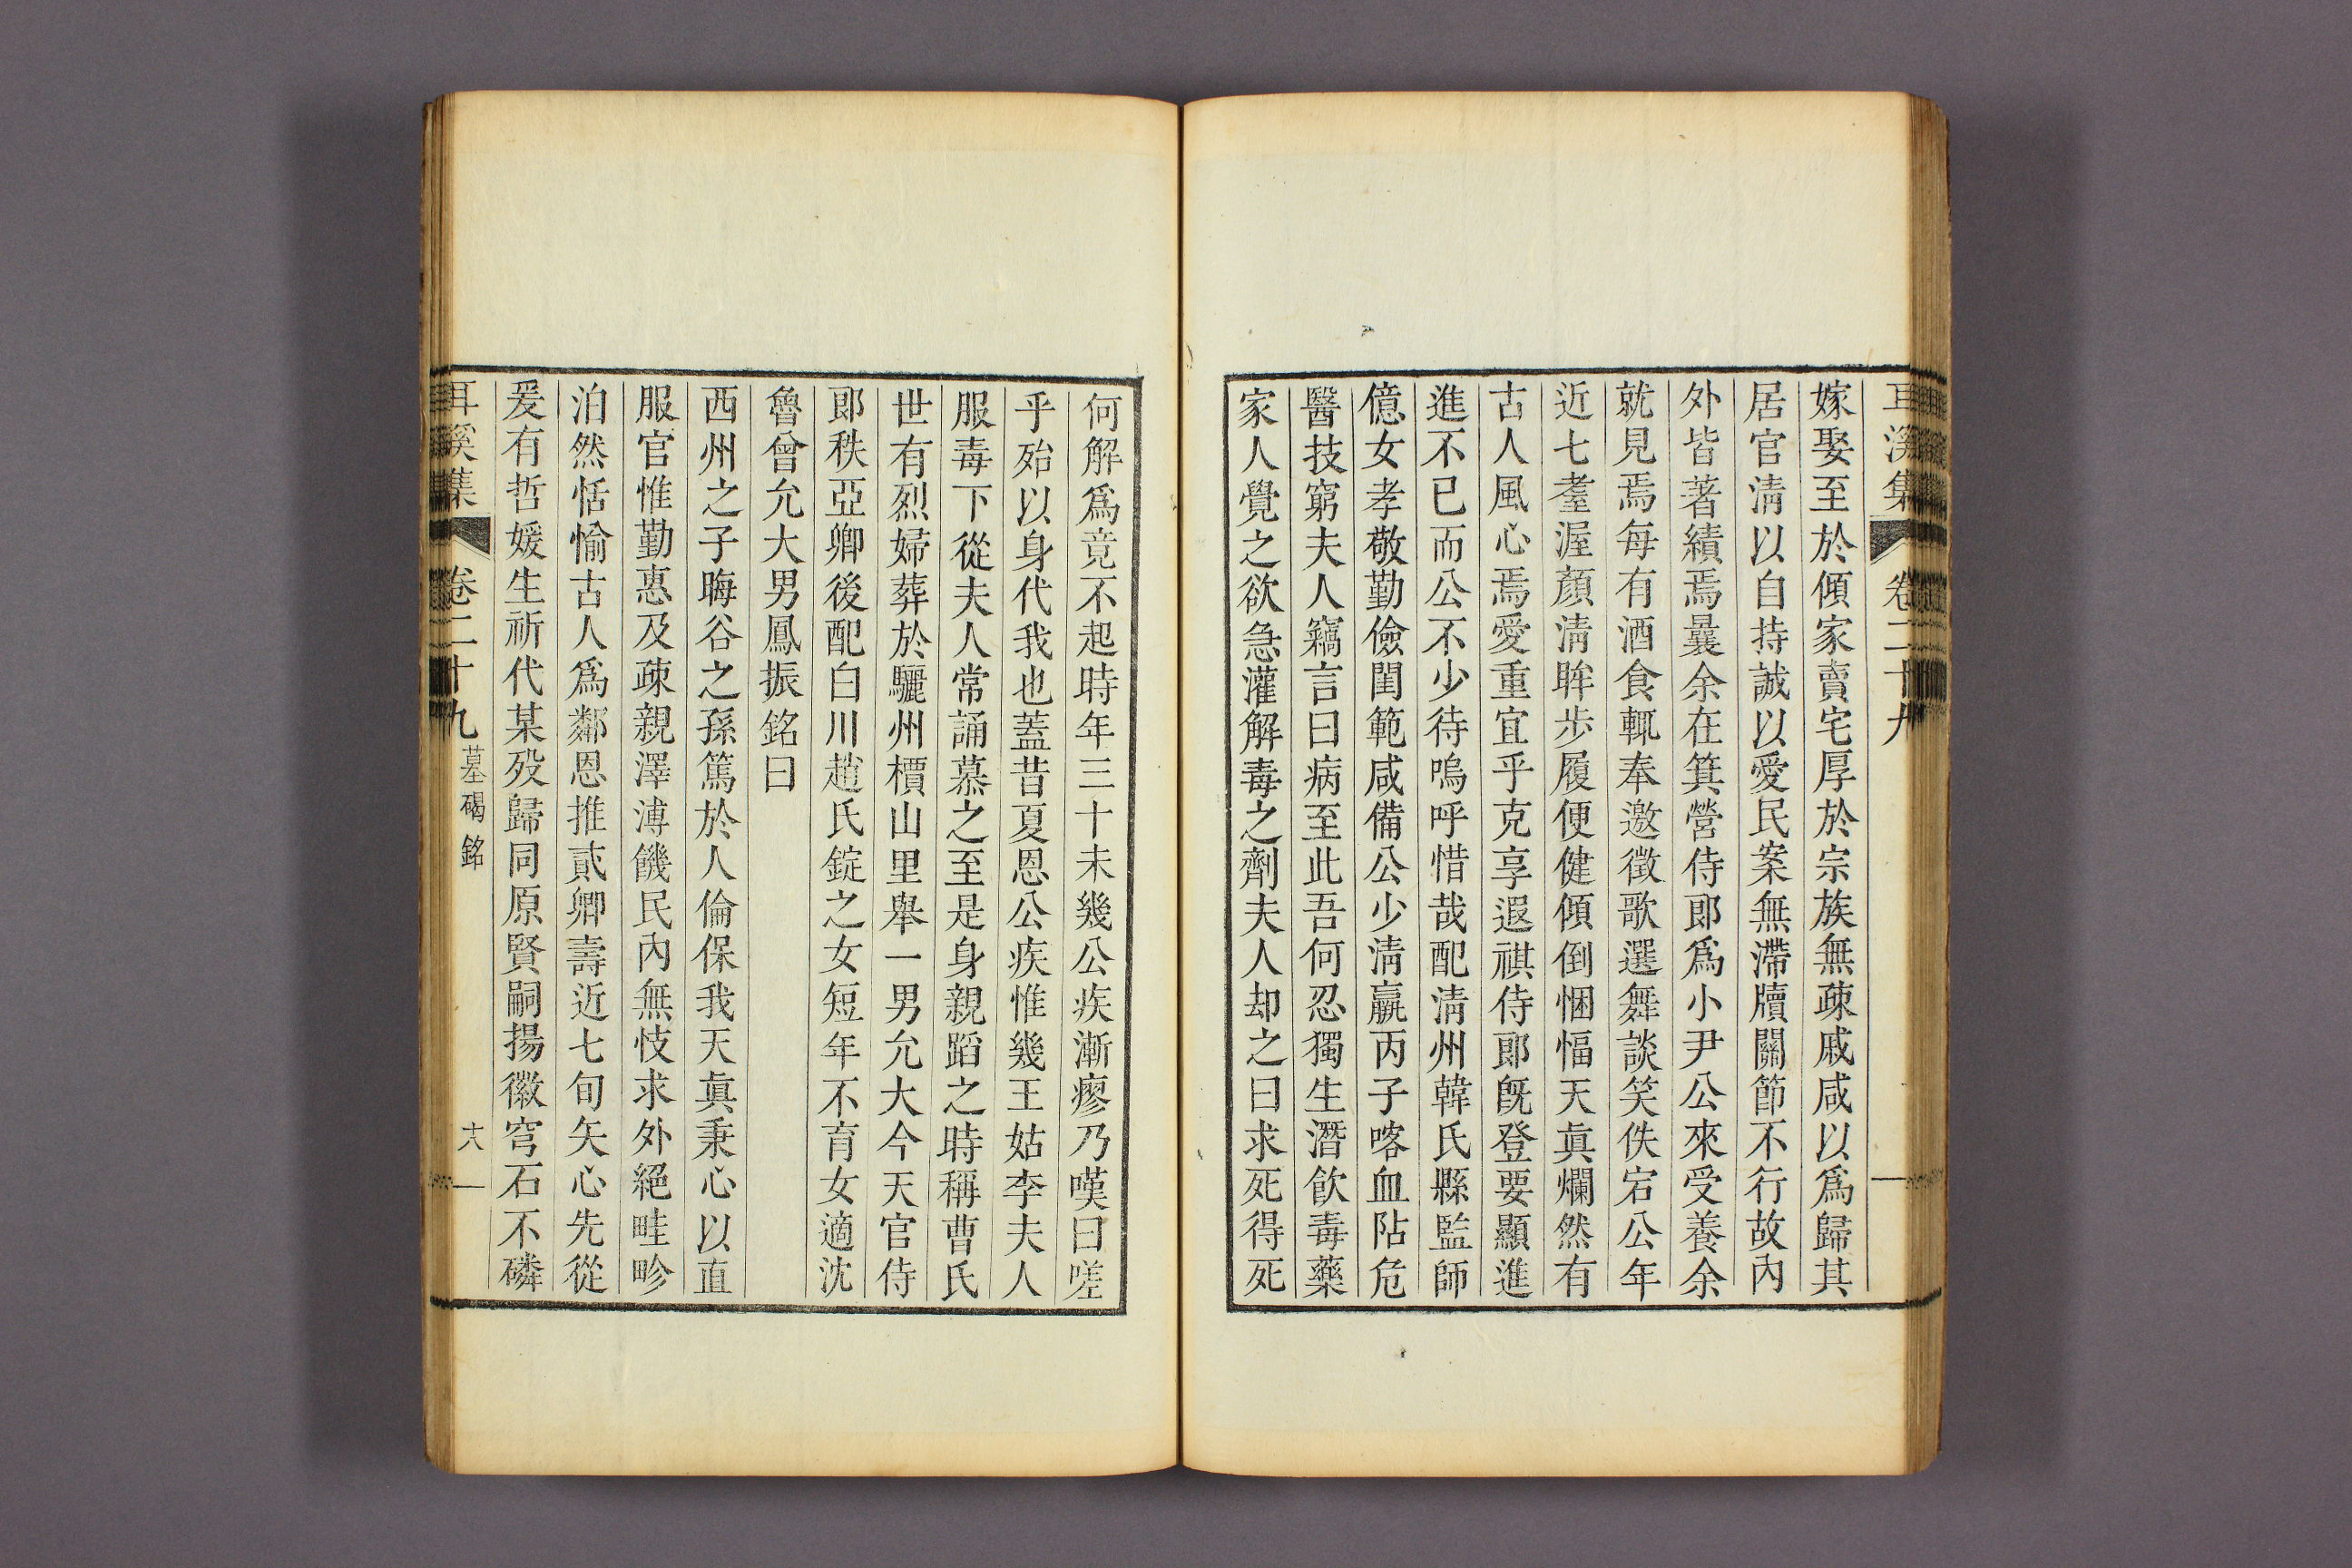 耳溪集 卷二十九
嫁娶至於傾家賣宅厚於宗族無疎戚咸以爲歸其
居官淸以自持誠以愛民案無滯牘關節不行故內
外皆著績焉曩余在箕營侍郞爲小尹公來受養余
就見焉每有酒食輒奉邀徵歌選舞談笑佚宕公年
近七耋渥顏淸眸步履便健傾倒悃愊天眞爛然有
古人風心焉愛重宜乎克享遐祺侍郞旣登要顯進
進不已而公不少待嗚呼惜哉配淸州韓氏縣監師
億女孝敬勤儉閨範咸備公少淸羸丙子喀血阽危
醫技窮夫人竊言曰病至此吾何忍獨生潛飮毒藥
家人覺之欲急灌解毒之劑夫人却之曰求死得死
何解爲竟不起時年三十未幾公疾漸瘳乃嘆曰嗟
乎殆以身代我也蓋昔夏恩公疾惟幾王姑李夫人
服毒下從夫人常誦慕之至是身親蹈之時稱曹氏
世有烈婦葬於驪州檟山里擧一男允大今天官侍
郞秩亞卿後配白川趙氏錠之女短年不育女適沈
魯曾允大男鳳振銘曰
西州之子晦谷之孫篤於人倫保我天眞秉心以直
服官惟勤惠及疎親澤溥饑民內無忮求外絕畦畛
泊然恬愉古人爲鄰恩推貳卿壽近七旬矢心先從
爰有哲媛生祈代某歿歸同原賢嗣揚徽穹石不磷
耳溪集 卷二十九 墓碣銘 十八